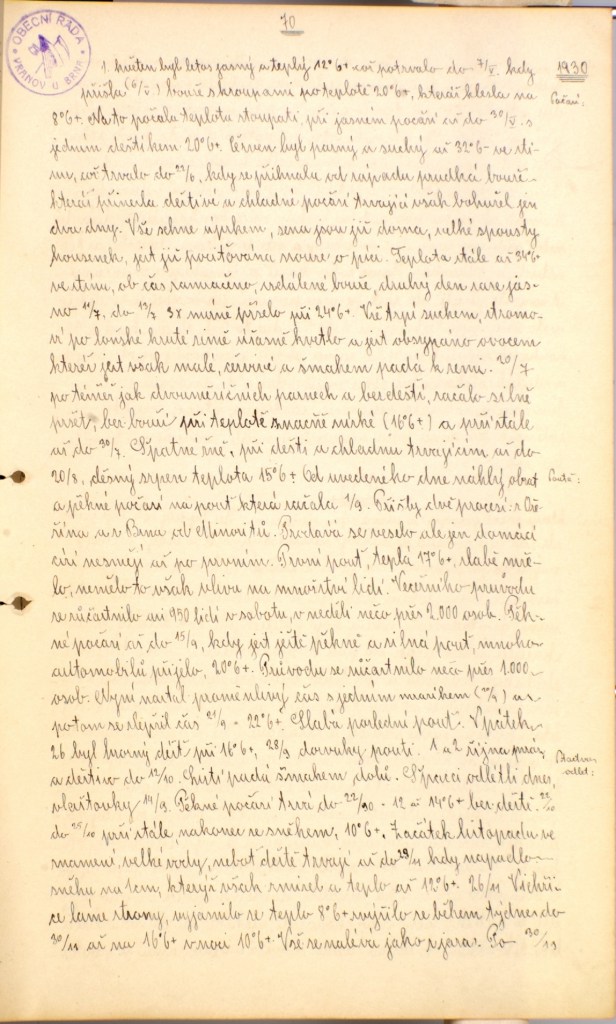 70
OBECNÍ RADA
VRANOV U BRNA
1930
1. květen byl letos jasný a teplý 12°C+ což potrvalo do 7/V. kdy
přišla (6/V.) bouře s kroupami po teplotě 20°C+, kteráž klesla na
Počasí:
8°C+. Na to počala teplota stoupati, při jasném počasí až do 30/V. s
jedním deštíkem 20°C+. Červen byl parný a suchý až 32°C- ve stí-
nu, což trvalo do 22/6, kdy se přihnala od západu prudká bouře-
kteráž přinesla deštivé a chladné počasí trvající však bohužel jen
dva dny. Vše schne úpukem, sena jsou již doma, velké spousty
housenek, jest již pociťována nouze o píci. Teplota stále až 34°C+
ve stínu, ob čas zamračeno, vzdálené bouře, druhý den zase jas-
no 11/7, do 13/7 3x mírně přšelo při 24°C+. Vše trpí suchem, stromo-
ví po loňské kruté zimě úžasně kvetlo a jest obsypáno ovocem
kteréž jest však malé, červivé a šmahem padá k zemi. 20/7
po téměř jak dvouměsíčních parnech a bez deští, začalo silně
pršet, bez bouří při teplotě značně nízké (16°C+) a prší stále
až do 30/7. Špatné žně, při dešti a chladnu trvajícím až do
20/8, děsný srpen teplota 15°C+ Od uvedeného dne náhlý obrat
Poutě:
a pěkné počasí na pouť která začala 1/9. Přišly dvě procesí: z Oře-
šína a z Brna od Minoritů. Prodává se veselo ale jen domácí
cizí nesmějí až po prvním. První pouť, teplá 17°C+, slabě mže-
lo, nemělo to však vlivu na množství lidí. Večerního průvodu
se zúčastnilo asi 950 lidí v sobotu, v neděli něco přes 2.000 osob. Pěk-
né počasí až do 15/9, kdy jest ještě pěkně a silná pouť, mnoho
automobilů přijelo, 20°C+. Průvodu se zúčastnilo něco přes 1.000.-
osob. Nyní nastal proměnlivý čas s jedním mrazíkem a z-
potom se zlepšil čas 21/9 = 22°C+. Slabá poslední pouť. V pátek-
26 byl hrozný déšť při 16°C+, 28/9 dozvuky poutí. 1 a 2 října mráz
Ptactvo
odlet:
a deštivo do 12/10. Listí padá šmahem dolů. Špaci odlétli dnes,
vlaštovky 14/9. Pěkné počasí trvá do 22/10 - 12 až 14°C+ bez deští. 22/10
do 25/10 prší stále, nakonec se sněhem, 10°C+. Začátek listopadu ve
znamení, velké vody, neboť deště trvají až do 29/11 kdy napadlo-
sněhu na 1cm, kterýž však zmizel a teplo až 12°C+. 26/11 Vichři-
ce láme stromy, vyjasnilo se teplo 8°C+ zvýšilo se během týdne do
30/11 až na 16°C+ v noci 10°C+. Vše se nalévá jako z jara. Po 30/11